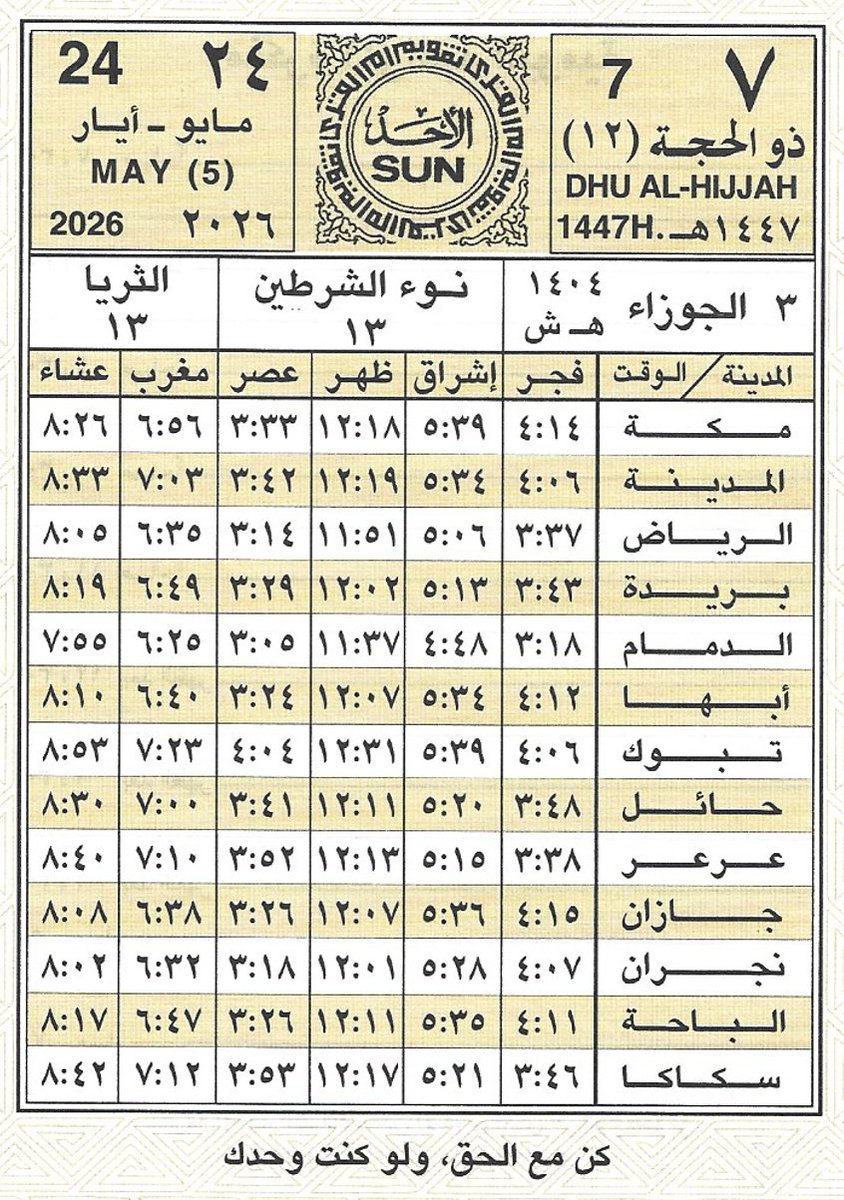 ٧ 7
ذو الحجـة (١٢)
DHU AL-HIJJAH
١٤٤٧هـ 1447H.
تقويم أم القرى
الأحد
SUN
24 ٢٤
مايو - أيار
MAY (5)
2026 ٢٠٢٦
٣ الجوزاء ١٤٠٤ هـ ش
نـوء الشرطين ١٣
الثريا ١٣
المدينة / الوقت فجـر إشراق ظهـر عصـر مغرب عشاء
مكة ٤:١٤ ٥:٣٩ ١٢:١٨ ٣:٣٣ ٦:٥٦ ٨:٢٦
المدينة ٤:٠٦ ٥:٣٤ ١٢:١٩ ٣:٤٢ ٧:٠٣ ٨:٣٣
الرياض ٣:٣٧ ٥:٠٦ ١١:٥١ ٣:١٤ ٦:٣٥ ٨:٠٥
بريدة ٣:٤٣ ٥:١٣ ١٢:٠٢ ٣:٢٩ ٦:٤٩ ٨:١٩
الدمام ٣:١٨ ٤:٤٨ ١١:٣٧ ٣:٠٥ ٦:٢٥ ٧:٥٥
أبها ٤:١٢ ٥:٣٤ ١٢:٠٧ ٣:٢٤ ٦:٤٠ ٨:١٠
تبوك ٤:٠٦ ٥:٣٩ ١٢:٣١ ٤:٠٤ ٧:٢٣ ٨:٥٣
حائل ٣:٤٨ ٥:٢٠ ١٢:١١ ٣:٤١ ٧:٠٠ ٨:٣٠
عرعر ٣:٣٨ ٥:١٥ ١٢:١٣ ٣:٥٢ ٧:١٠ ٨:٤٠
جازان ٤:١٥ ٥:٣٦ ١٢:٠٧ ٣:٢٦ ٦:٣٨ ٨:٠٨
نجران ٤:٠٧ ٥:٢٨ ١٢:٠١ ٣:١٨ ٦:٣٢ ٨:٠٢
الباحة ٤:١١ ٥:٣٥ ١٢:١١ ٣:٢٦ ٦:٤٧ ٨:١٧
سكاكا ٣:٤٦ ٥:٢١ ١٢:١٧ ٣:٥٣ ٧:١٢ ٨:٤٢
كن مع الحق، ولو كنت وحدك